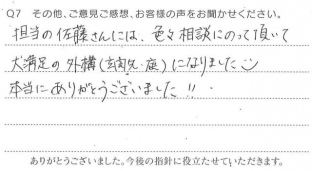 Q7 その他、ご意見ご感想、お客様の声をお聞かせください。
担当の佐藤さんには、色々相談にのって頂いて
大満足の外構(玄関先・庭)になりました
本当にありがとうございました!!
ありがとうございました。今後の指針に役立たせていただきます。